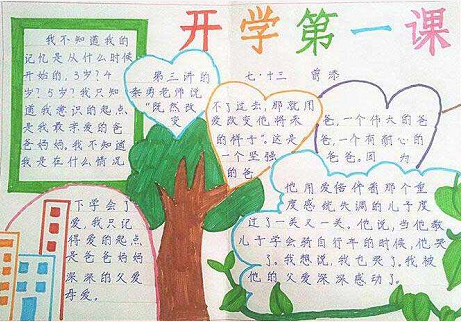 开学第一课
我不知道我的
记忆是从什么时候
开始的,3岁?4
岁?5岁?我只知
道我意识的起点
是我敬亲爱的爸
爸妈妈,我不知道
我是在什么情况
下学会了
爱,我只记
得爱的起点
是爸爸妈妈
深深的父爱
母爱。
第三讲的
秦勇老师说
"既然改
变
七·十三
不了过去,那就用
爱改变他将来
的样子"。这是
一个坚强
的爸
爸,一个伟大的爸
爸,一个有耐心的
爸爸。因 为
他用爱陪伴着那个重
度感统失调的儿子度
过了一关又一关。他说,当他教
儿子学会骑自行车的时候,他哭
了。我想说,我也哭了。我被
他的父爱深深感动了。